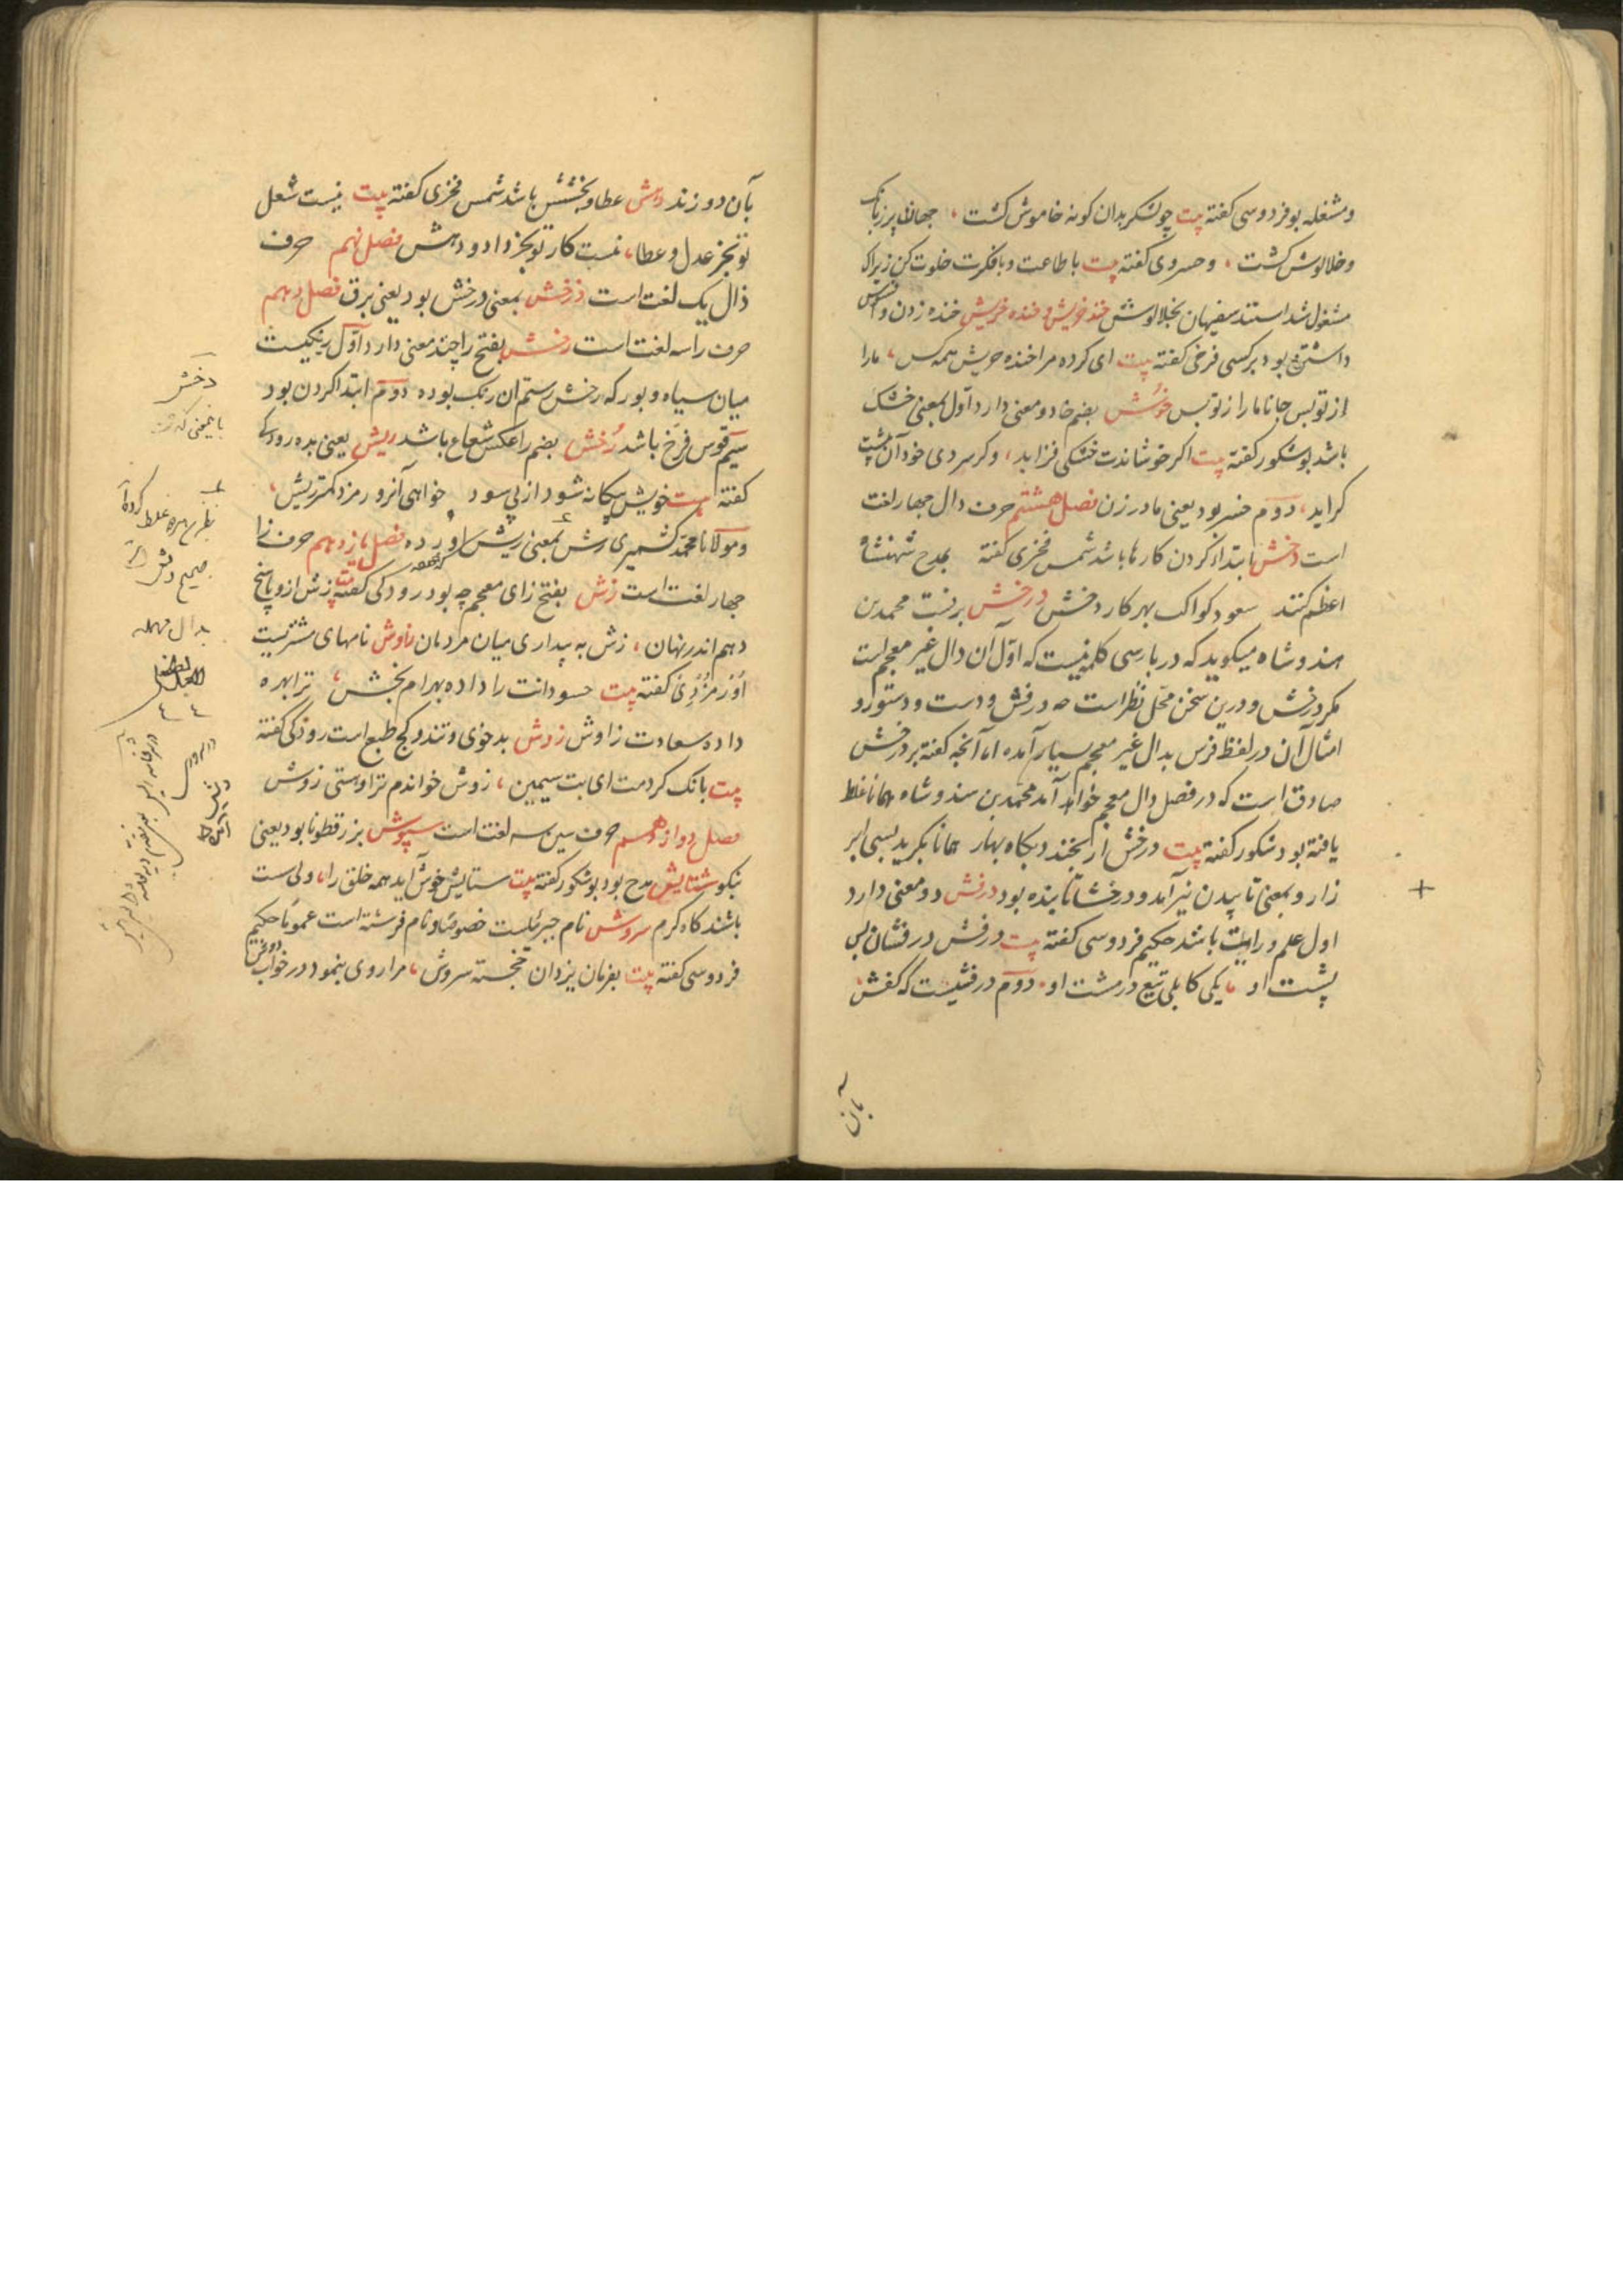 ومشغله بود فردوسی کفته بیت چو لشکر بدان کونه خاموش کشت ، جهان پر ز بانک
وخلالوش کشت ، وخسروی کفته بیت با طاعت وبافکرت خلوت کن زیراک
مشغول شدستند سفیهان بخلالوش خنده خریش و خنده خریش خنده زدن و افسوس
داشتن بود برکسی فرخی کفته بیت ای کرده مرا خنده خریش همه کس ، مارا
از تو بس جانا مارا ز تو بس خوش بضم خا دو معنی دارد اول بمعنی خشک
باشد بوشکور کفته بیت اکر خوشاندت خشکی فزاید ، وکر سردی خود آن بیشت
کراید ، دوم خسر بود یعنی مادر زن فصل هشتم حرف دال چهار لغت
است دخش ابتدا کردن کارها باشد شمس فخری کفته بمدح شهنشاه
اعظم کنند سعود کواکب بهر کار دخش درخش برقست محمد بن
هندوشاه میکوید که در پارسی کلمه نیست که اول آن دال غیر معجم است
مکر درخش و درین سخن محل نظر است چه درفش و دست و دستور و
امثال آن در لفظ فرس بدال غیر معجم بسیار آمده اما آنچه کفته بر درخش
صادق است که در فصل دال معجم خواهد آمد محمد بن هندوشاه همانا غلط
یافته بود شکور کفته بیت درخش ار نخندد بکاه بهار همانا نکرید بسی ابر
زار و بمعنی تابیدن نیز آمد و درخشان تابنده بود درفش دو معنی دارد
اول علم و رایت باشد حکیم فردوسی کفته بیت درفش درفشان پس
پشت او یکی کابلی تیغ در مشت او ، دوم درفشیست که کفش
بآن دوزند دهش عطا و بخشش باشد شمس فخری کفته بیت نیست شغل
تو بجز عدل و عطا ، نیست کار تو بجز داد و دهش فصل نهم حرف
ذال یک لغت است ذرخش بمعنی درخش بود یعنی برق فصل دهم
حرف را سه لغت است رخش بفتح را چند معنی دارد اول رنکیست
میان سیاه و بور که رخش رستم آن رنک بوده دوم ابتدا کردن بود
سیم قوس قزح باشد رُخش بضم را عکس شعاع باشد ریش یعنی بده رودکی
کفته بیت خویش بیکانه شود از پی سود خواهی آنرو رمزد کمتر ریش ،
ومولانا محمد کشمیری رش بمعنی ریش آورده فصل یازدهم حرف زا
چهار لغت است زش بفتح زای معجم چه بود رودکی کفته بیت زش ازو پاسخ
دهم اندر نهان ، زش به پیداری میان مردمان زاوش نامهای مشتریست
اورمزدی کفته بیت حسودانت را داده بهرام بخش ، ترا بهره
داده سعادت زاوش زوش بدخوی و تند و کج طبع است رودکی کفته
بیت بانک کردمت ای بت سیمین ، زوش خواندم ترا و هستی زوش
فصل دوازدهم حرف سین سه لغت است سپوش بزرقطونا بود یعنی
بنکو ستایش مدح بود بوشکور کفته بیت ستایش خوش آید همه خلق را ، ولی ست
باشند کاه کرم سروش نام جبرئیلست خصوصا و نام فرشته است عموما حکیم
فردوسی کفته بیت بفرمان یزدان خجسته سروش ، مرا روی بنمود در خواب دوش
بآن
دخش
صحیح
بدال مهمله